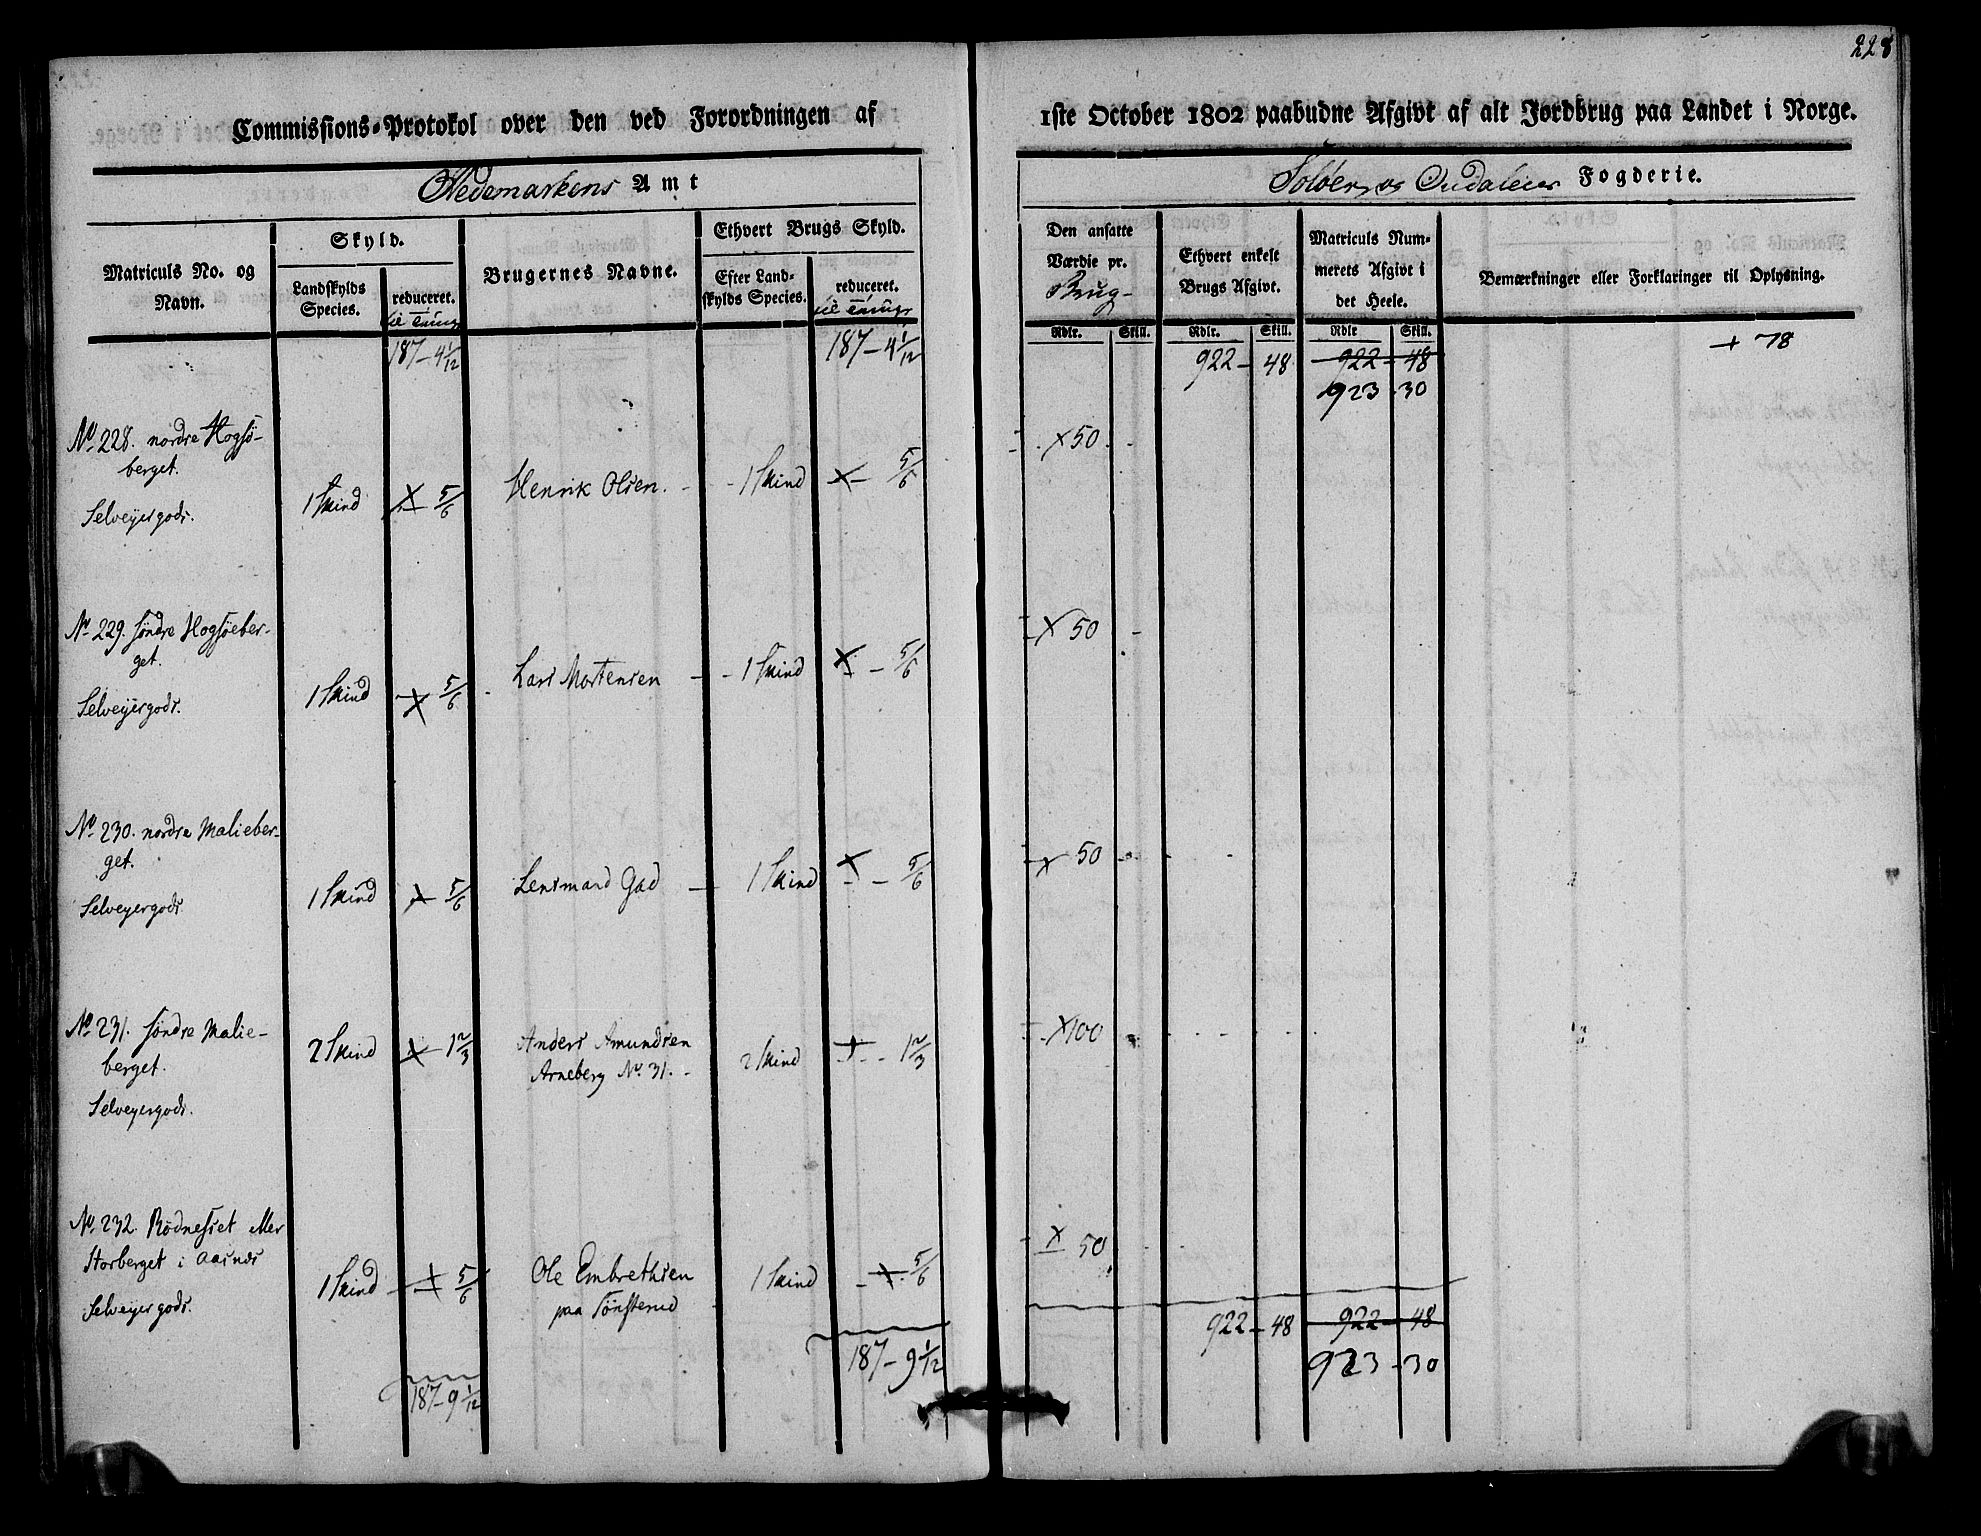 228
Commissions-Protokol over den ved Forordningen af 1ste October 1802 paabudne Afgivt af alt Jordbrug paa Landet i Norge.
Hedemarkens Amt
Soløer og Oudalens Fogderie.
Matriculs No. og Navn.
Skyld.
Landskylds Species.
reduceret.
til Tunge
Brugernes Navne.
Ethvert Brugs Skyld.
Efter Landskylds Species.
reduceret.
til Tunge
Den ansatte Værdie pr. Brug
Ethvert enkelt Brugs Afgivt.
Matriculs Nummerets Afgivt i det Heele.
Bemærkninger eller Forklaringer til Oplysning.
Rdlr. Skill. Rdlr. Skill. Rdlr Skill.
187-4 1/12 187-4 1/12 922-48 922-48 + 78
923-30
No. 228. nordre Hogsö-
berget. x50
Selveyergods. 1 Skind x 5/6 Henrik Olsen. 1 Skind x 5/6
No. 229. söndre Hogsöeber-
get. x 50
Selveyergods. 1 Skind x 5/6 Lars Mortensen 1 Skind x 5/6
No. 230. nordre Malieber-
get. x 50
Selveyergods 1 Skind x 5/6 Lensmand Gad 1 Skind x 5/6
No. 231. söndre Malie-
berget. 2 Skind x 1 2/3 Anders Amundsen 2 Skind x 1 2/3 x100
Arneberg No. 31.
Selveyergods.
No. 232. Rödnesset eller
Storberget i Aasnes x 50
Selveyergods. 1 Skind x 5/6 Ole Embrethsen 1 Skind x 5/6
paa Tönsterud
187-9 1/12 187-9 1/12 922-48 922-48
923-30